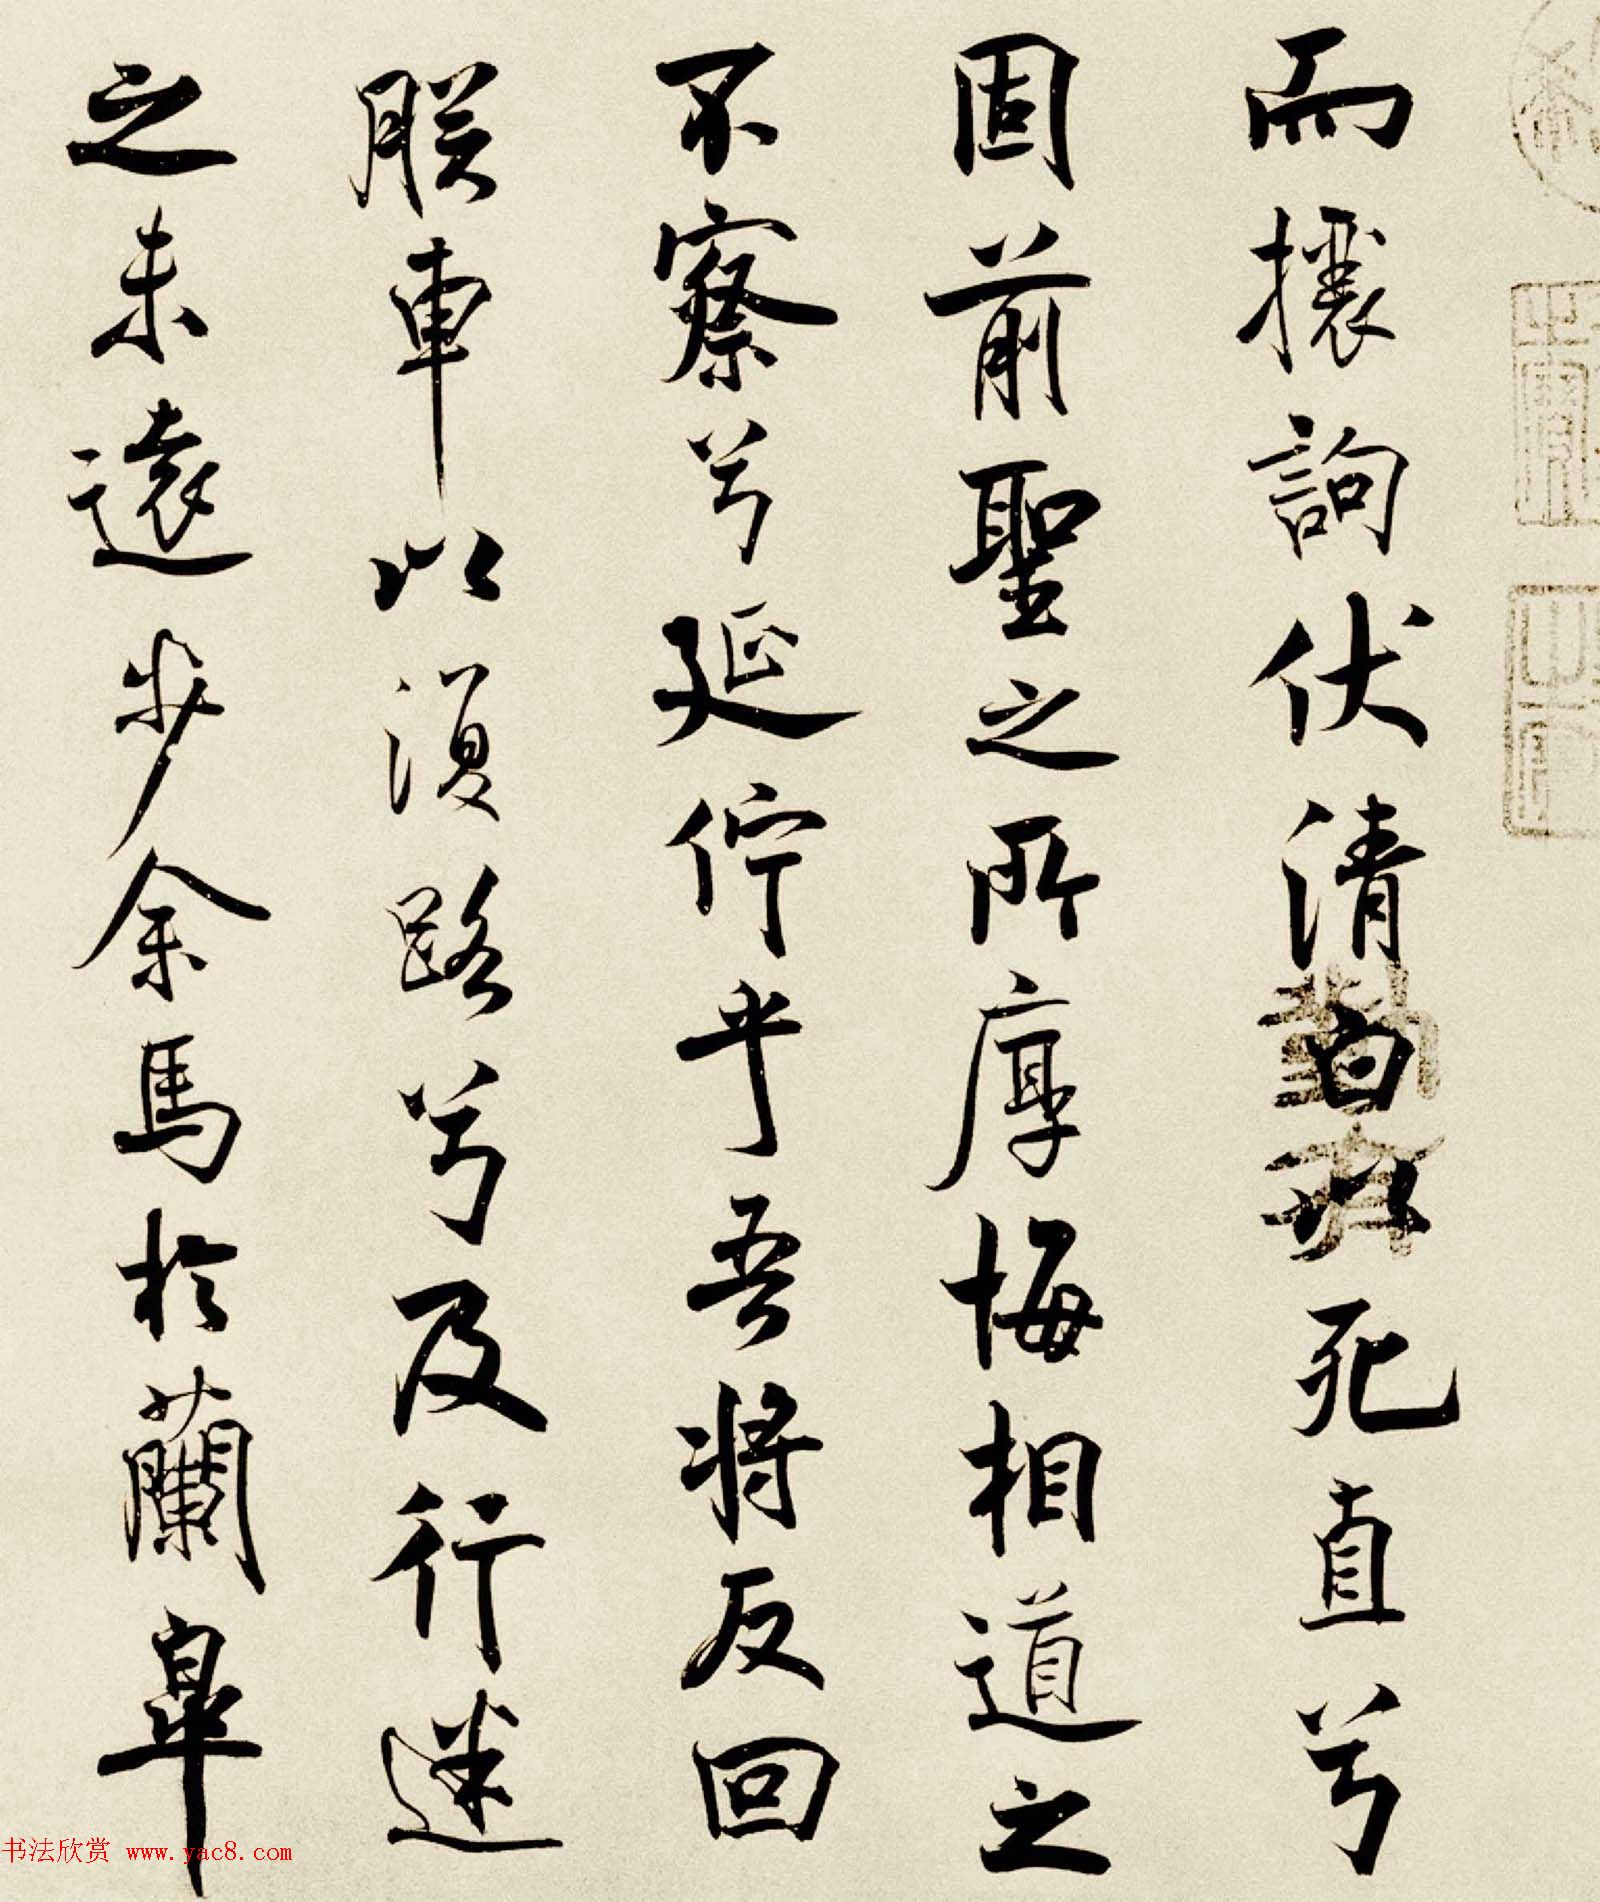 而攘訽伏清白以死直兮
固前聖之所厚悔相道之
不察兮延佇乎吾将反回
朕車以復路兮及行迷
之未遠步余馬於蘭皋
书法欣赏 www.yac8.com